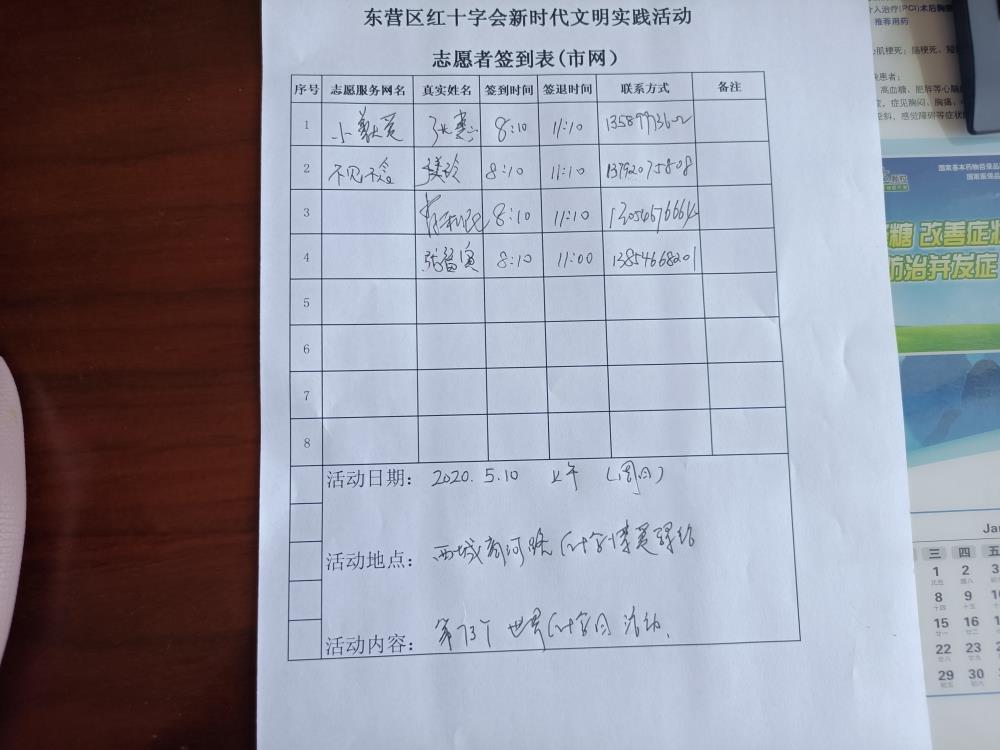 东营区红十字会新时代文明实践活动
志愿者签到表(市网)
序号 志愿服务网名 真实姓名 签到时间 签退时间 联系方式 备注
1 8:10 11:10
2 不见不念 8:10 11:10 13792075808
3 8:10 11:10 13054676664
4 8:10 11:00 13854668201
5
6
7
8
活动日期: 2020.5.10 上午 (周日)
活动地点: 西城 河路红十字
活动内容: 第73个世界红十字日活动.
介入治疗(PCI)术后胸痛
推荐用药
心肌梗死; 脑梗死、短
高血糖、肥胖等心脑
症见胸闷、胸痛、
歪斜, 感觉障碍等症状
国家基本药物目录品
国家医保品
糖 改善症状
防治并发症
Jan
三 四 五
1 2 3
8 9 10
15 16
22 23
29 30